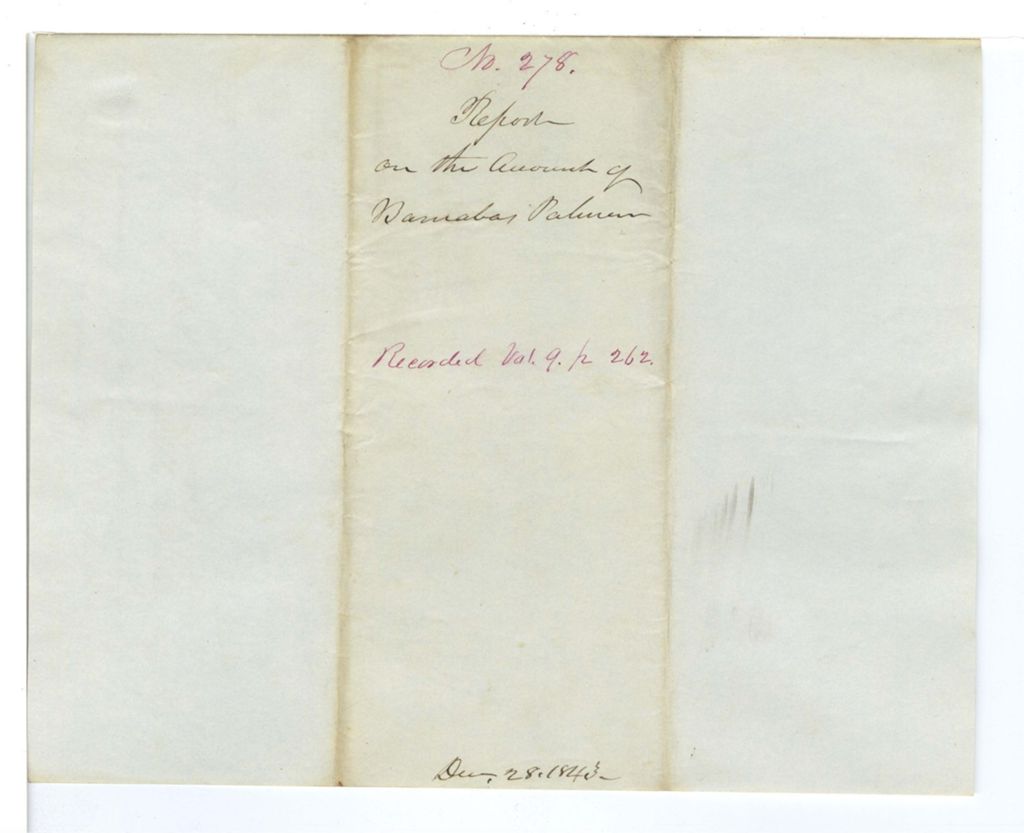 No. 278.
Report
on the Account of
Barnabas Palmer
Recorded Vol. 9. p 262.
Dec. 28. 1843